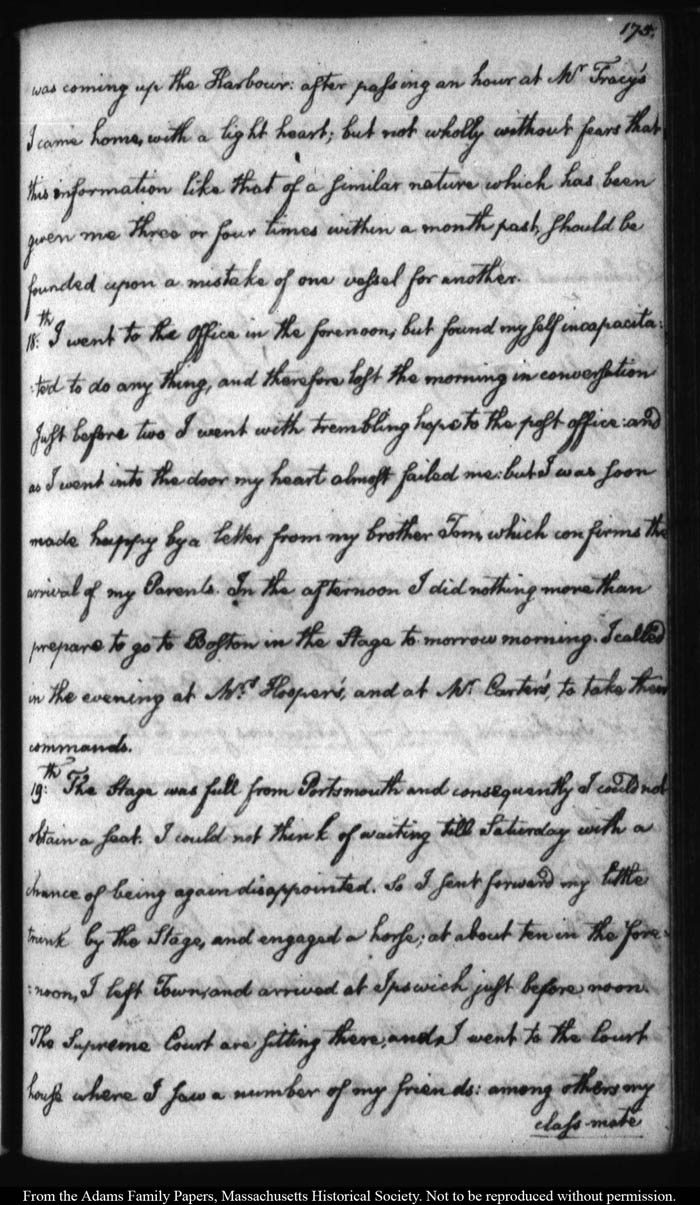 175.
was coming up the Harbour: after passing an hour at Mr Tracy's
I came home, with a light heart; but not wholly without fears that
this information like that of a similar nature which has been
given me three or four times within a month past, should be
founded upon a mistake of one vessel for another.
18:th I went to the Office in the forenoon, but found myself incapacita:
:ted to do any thing, and therefore lost the morning in conversation
Just before two I went with trembling hope to the post office: and
as I went into the door my heart almost failed me: but I was soon
made happy by a letter from my brother Tom, which confirms the
arrival of my Parents. In the afternoon I did nothing more than
prepare to go to Boston in the Stage to morrow morning. I called
in the evening at Mrs Hooper's, and at Mr Carter's, to take their
commands.
19:th The Stage was full from Portsmouth and consequently I could not
obtain a seat. I could not think of waiting till Saturday with a
chance of being again disappointed. So I sent forward my little
trunk by the Stage, and engaged a horse; at about ten in the fore:
:noon, I left Town, and arrived at Ipswich just before noon.
The Supreme Court are sitting there, and I went to the Court
house where I saw a number of my friends: among others my
class-mate
From the Adams Family Papers, Massachusetts Historical Society. Not to be reproduced without permission.